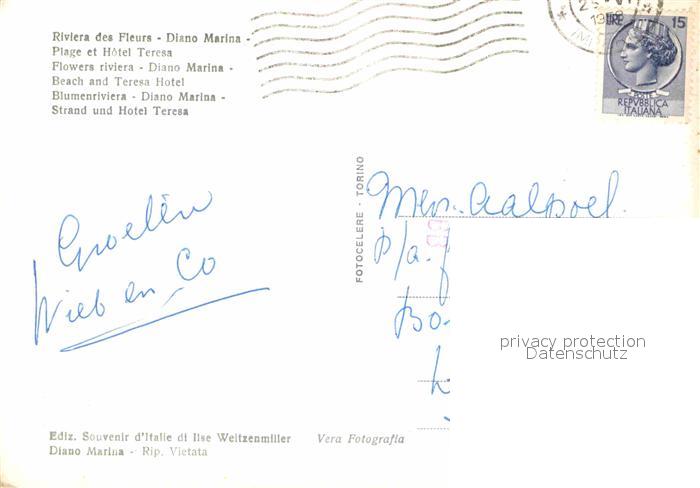 Riviera des Fleurs - Diano Marina -
Plage et Hôtel Teresa
Flowers riviera - Diano Marina -
Beach and Teresa Hotel
Blumenriviera - Diano Marina -
Strand und Hotel Teresa
LIRE 15
POSTE
REPVBBLICA
ITALIANA
FOTOCELERE - TORINO
P/a.
Bo-
Groeten
en Co
privacy protection
Datenschutz
Ediz. Souvenir d'Italie di Ilse Weitzenmiller
Diano Marina - Rip. Vietata
Vera Fotografia